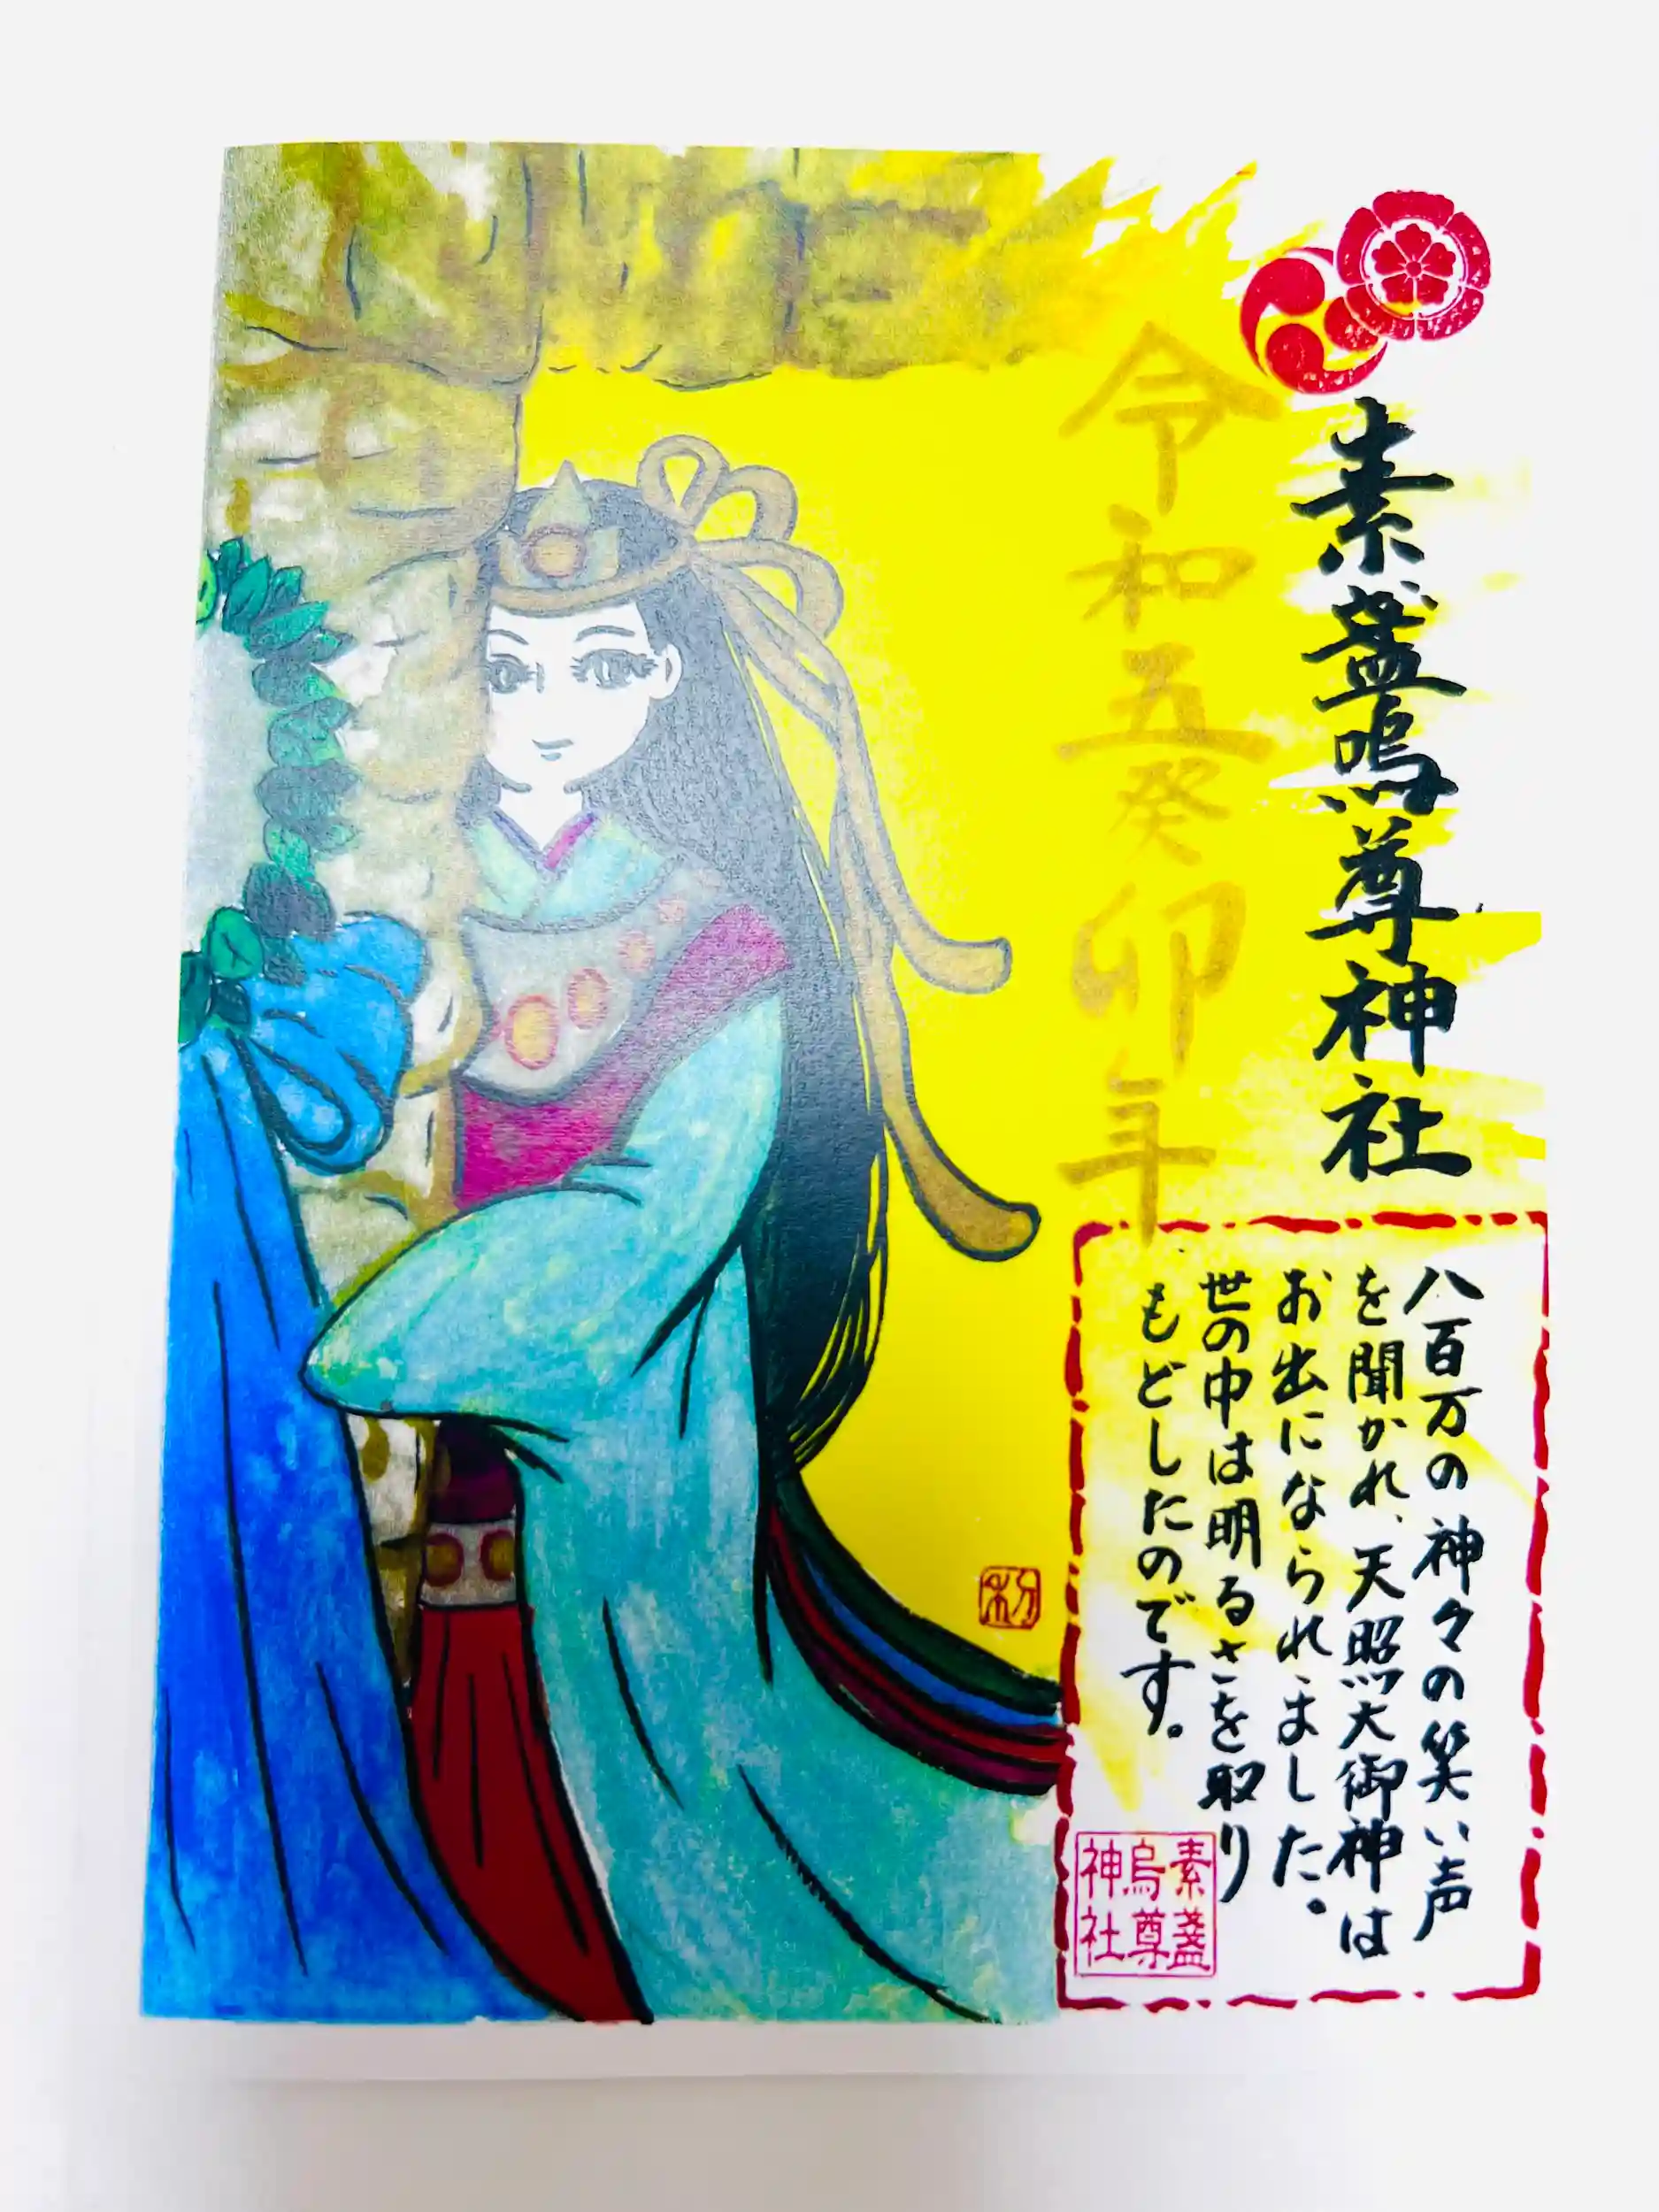 素盞嗚尊神社
令和五癸卯年
八百万の神々の笑い声
を聞かれ、天照大御神は
お出になられました。
世の中は明るさを取り
もどしたのです。
素盞
嗚尊
神社